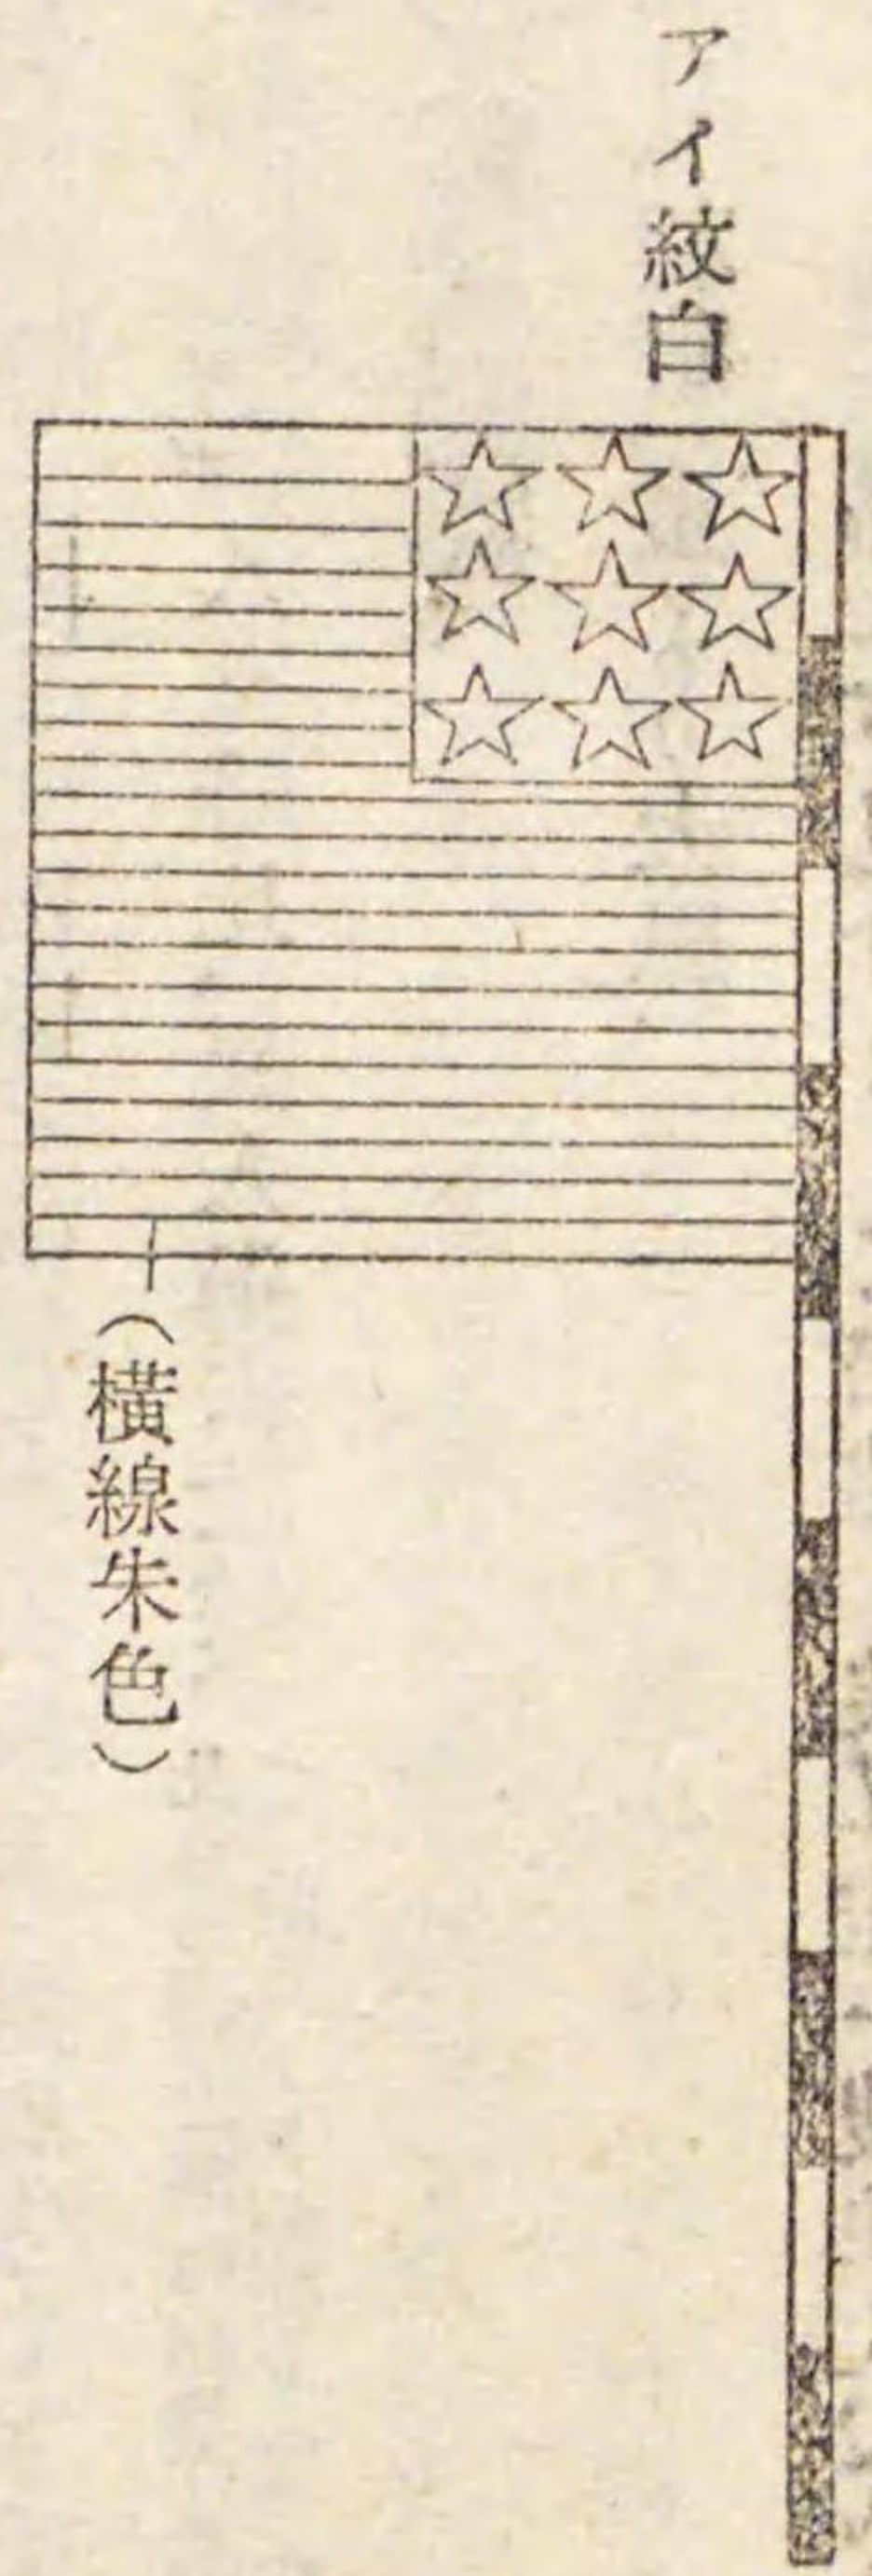 アイ紋白
(橫線朱色)